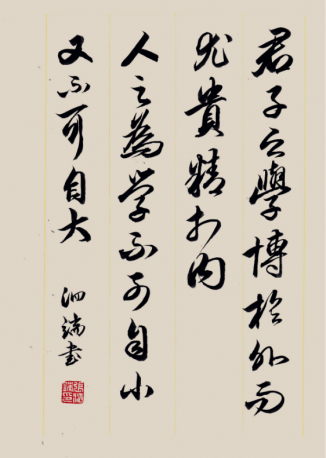 君子之學博於外而
尤貴精於内
人之為学不可自小
又不可自大
泗端書